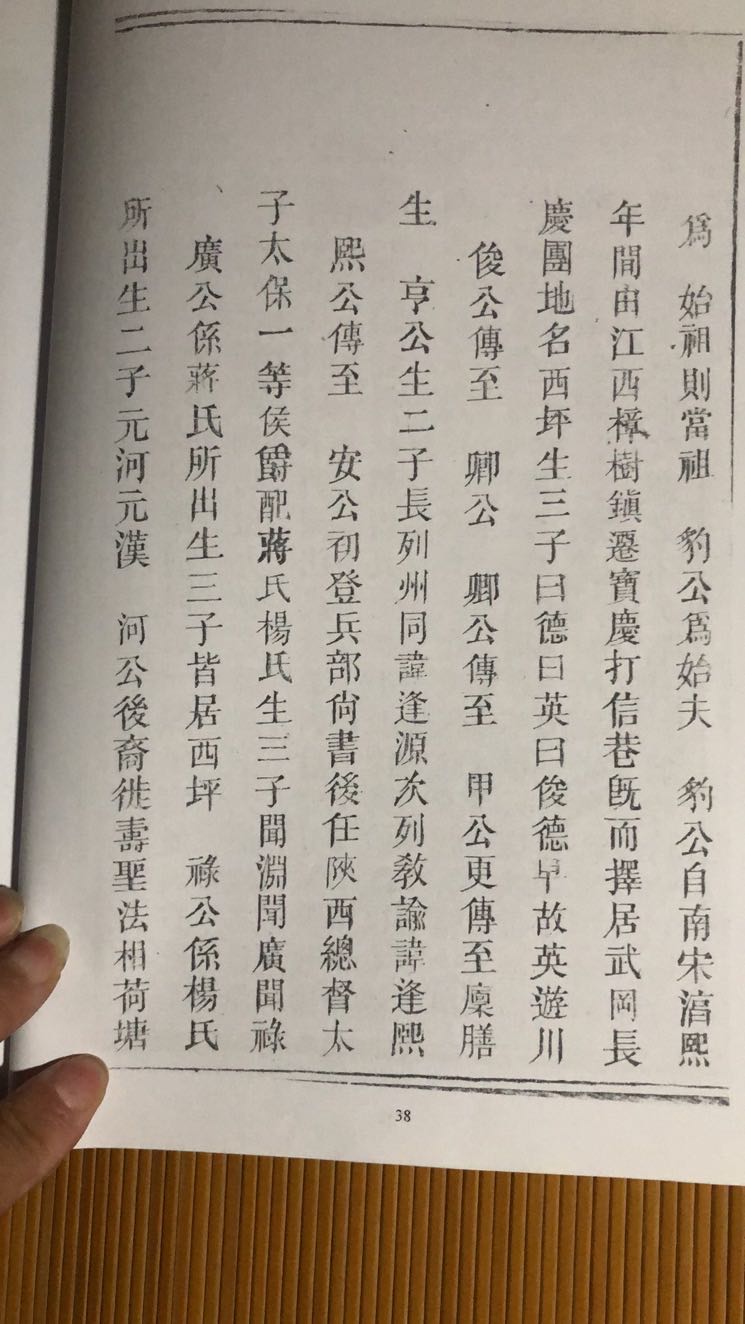 爲　始祖則當祖　豹公爲始夫　豹公自南宋淳熙
年間由江西樟樹鎮遷寶慶打信巷旣而擇居武岡長
慶團地名西坪生三子曰德曰英曰俊德早故英遊川
俊公傳至　卿公　卿公傳至　甲公更傳至廩膳
生　亨公生二子長列州同諱逢源次列敎諭諱逢熙
熙公傳至　安公初登兵部尙書後任陜西總督太
子太保一等侯爵配蔣氏楊氏生三子聞淵聞廣聞祿
廣公係蔣氏所出生三子皆居西坪　祿公係楊氏
所出生二子元河元漢　河公後裔徙壽聖法相荷塘
38